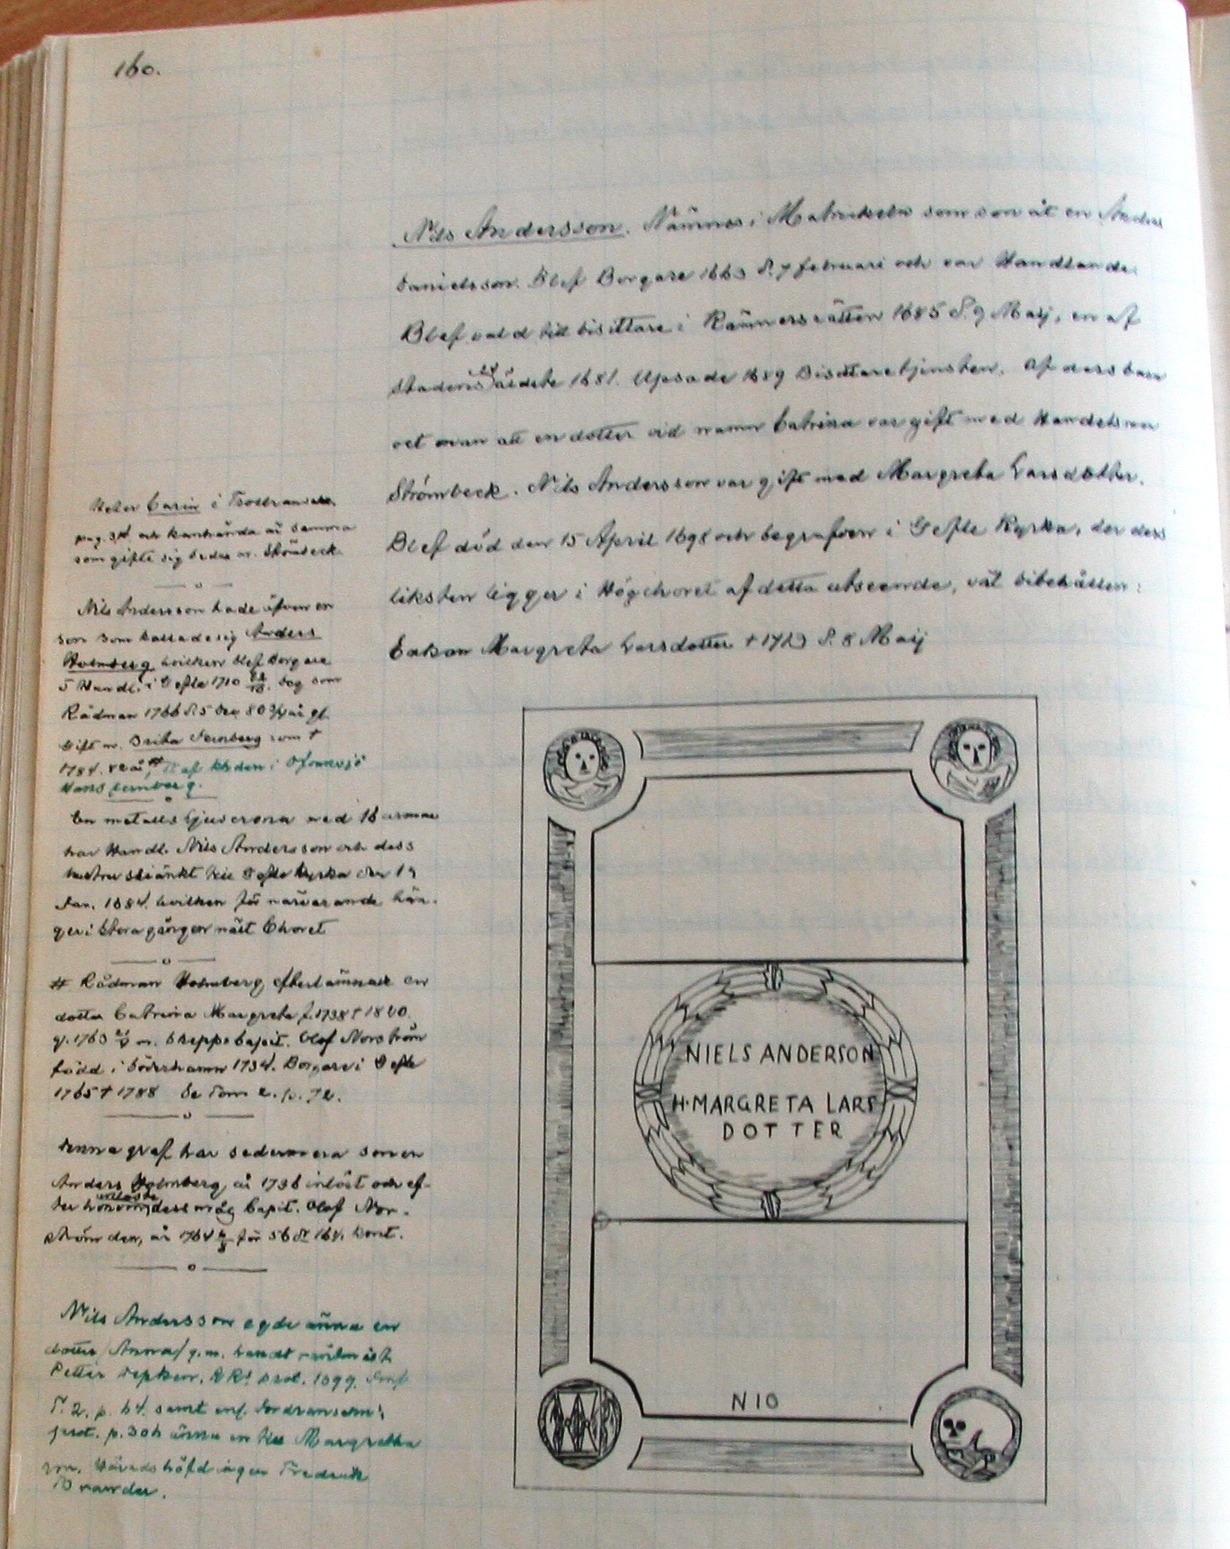 160.
Nils Andersson. Nämnes i Matrikeln som son åt en Anders
Danielsson. Blef Borgare 1663 d. 7 februari och var Handlande.
Blef vald till bisittare i Kämnersrätten 1685 d. 9 Maij, en af
Stadens äldste 1681. Upsade 1689 Bisittaretjensten. Af dess barn
vet man att en dotter vid namn Catrina var gift med Handelsman
Strömbeck. Nils Andersson var gift med Margreta Larsdotter.
Blef död den 15 April 1698 och begrafven i Gefle Kyrka, der dess
liksten ligger i Högchoret af detta utseende, väl bibehållen:
Enkan Margreta Larsdotter † 1723 d. 8 Maij
Heter Carin i
pag. och kanhända är samma
som gifte sig sedan m. Strömbeck
Nils Andersson hade äfven en
son som kallade sig Anders
Holmberg hvilken blef Borgare
Handl. i Gefle 1710 dog som
Rådman 1766 d. 5 80 år gl.
Gift m. Brita Fernberg som †
1784. 82 år,
Hans Fernberg.
En metalls ljuscrona med 16 armar
har Handl. Nils Andersson och dess
hustru skänkt till Gefle Kyrka den 19
Jan. 1684. hvilken för närvarande hän-
ger i Stora gången näst Choret
# Rådman Holmberg efterlämnade en
dotter Catrina Margreta f. 1738 † 1820.
g. 1763 m. Skepps Capit. Olof Norström
född i Söderhamn 1734. Borgare i Gefle
1765 † 1788 Se Tom 2. p. 72.
Denna graf har sedermera sonen
Anders Holmberg år 1736 inlöst och ef-
ter honom dess måg Capit. Olof Nor-
ström den, år 1764 för 56 16 k.mt.
Nils Andersson egde änna en
dotter /Anna/ g.m.
Petter Depken. 1699.
T. 2. p. 64. samt
p. 306 änna en till Margretha
m. Häradshöfdingen Fredrick
Brander.
NIELS ANDERSON
H·MARGRETA LARS
DOTTER
N 10